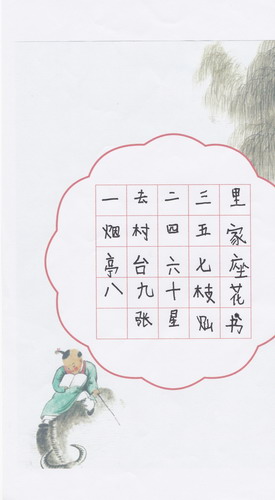 一去二三里
烟村四五家
亭台六七座
八九十枝花
张星灿书